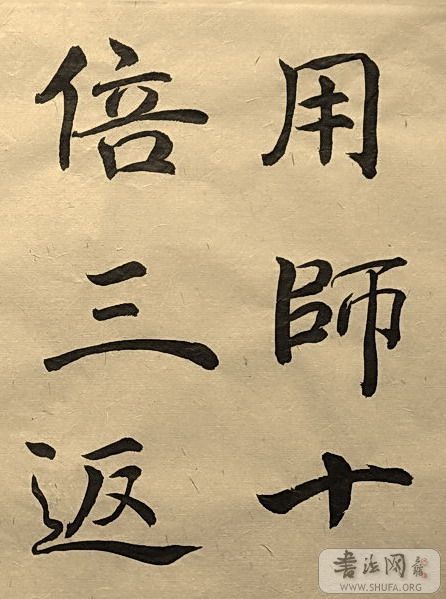 用師十
倍三返
書法网
WWW.SHUFA.ORG